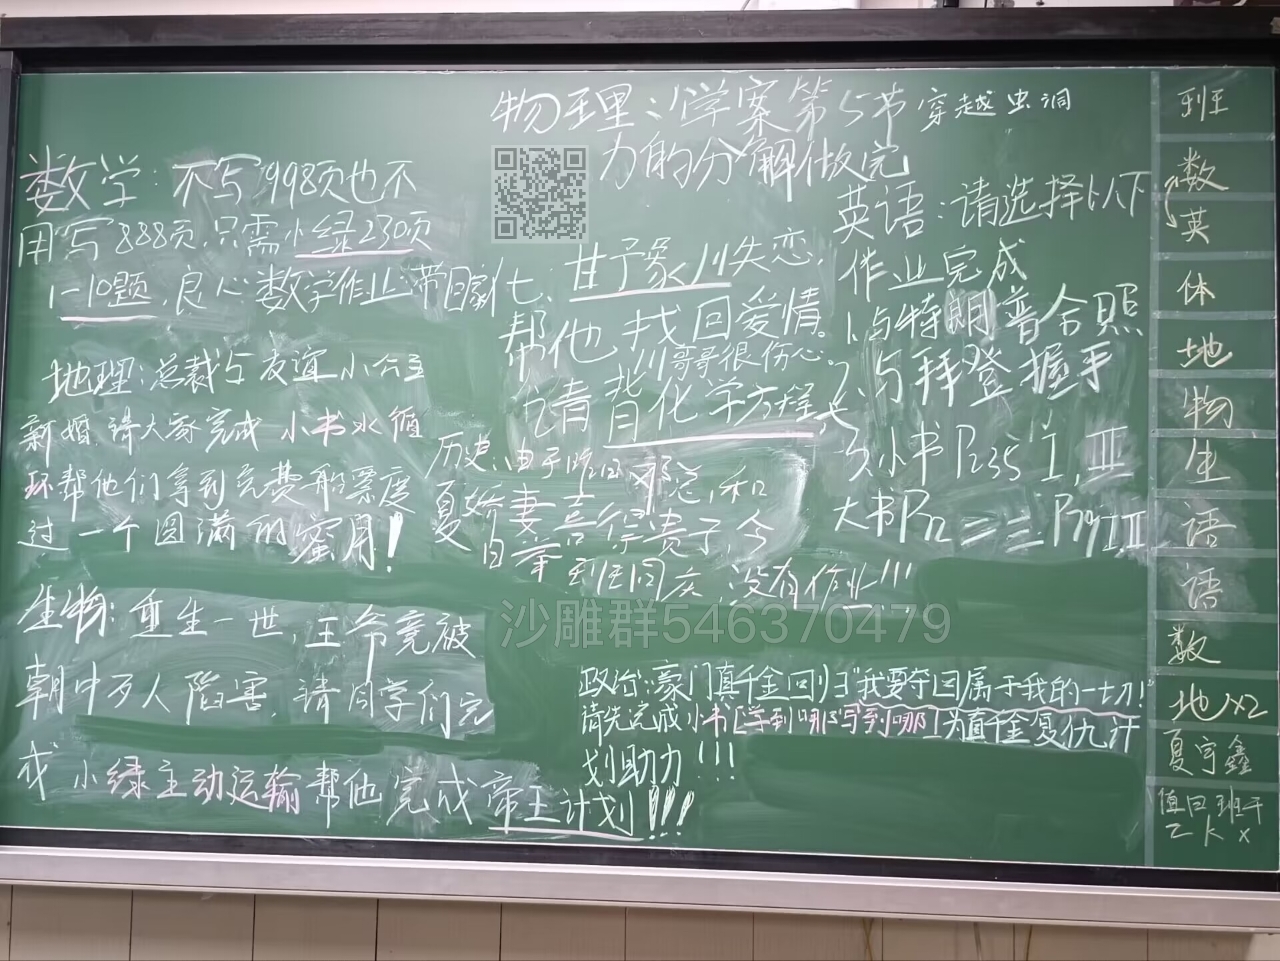 物理：学案第5节 穿越虫洞
力的分解做完
数学：不写998页也不
用写888页,只需小绿230页
1-10题,良心数学作业带回家
地理：总裁与友谊小公主
新婚,请大家完成小书水循
环帮他们拿到免费船票度
过一个圆满的蜜月!
生物：重生一世,王爷竟被
朝中万人陷害,请同学们完
成小绿主动运输帮他完成帝王计划!!!
化：甘予豪川失恋,
帮他找回爱情。
川哥哥很伤心。
九请背化学方程式
历史：由于
夏娇妻喜得贵子,今
日举班同庆,没有作业!!!
英语：请选择以下
作业完成
1.与特朗普合照
2.与拜登握手
3.小书P235 I,III
大书P72 二三 P79 I II
政治：豪门真千金回归"我要夺回属于我的一切!
请先完成小书[学到哪写到哪]为真千金复仇计
划助力!!!
班
数
英
体
地
物
生
语
语
数
地x2
夏宇鑫
值日班干
沙雕群546370479